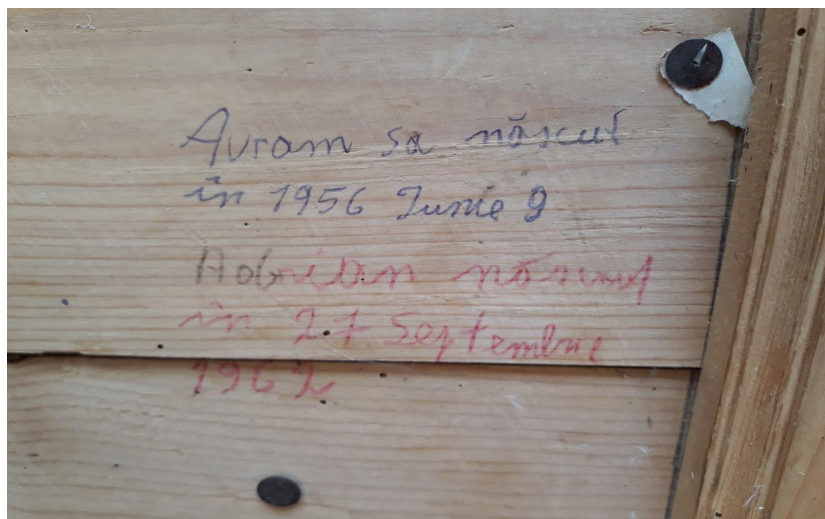 Avram sa născut
în 1956 Iunie 9
Adrian născut
în 27 Septembrie
1962